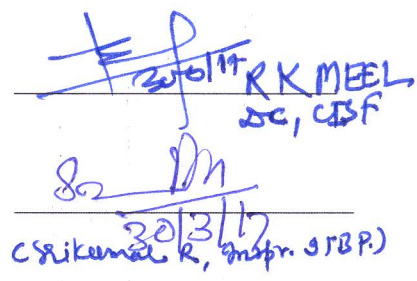 R K MEEL
DC, CISF
30/3/17
(Srikumar R, Inspr. ITBP.)